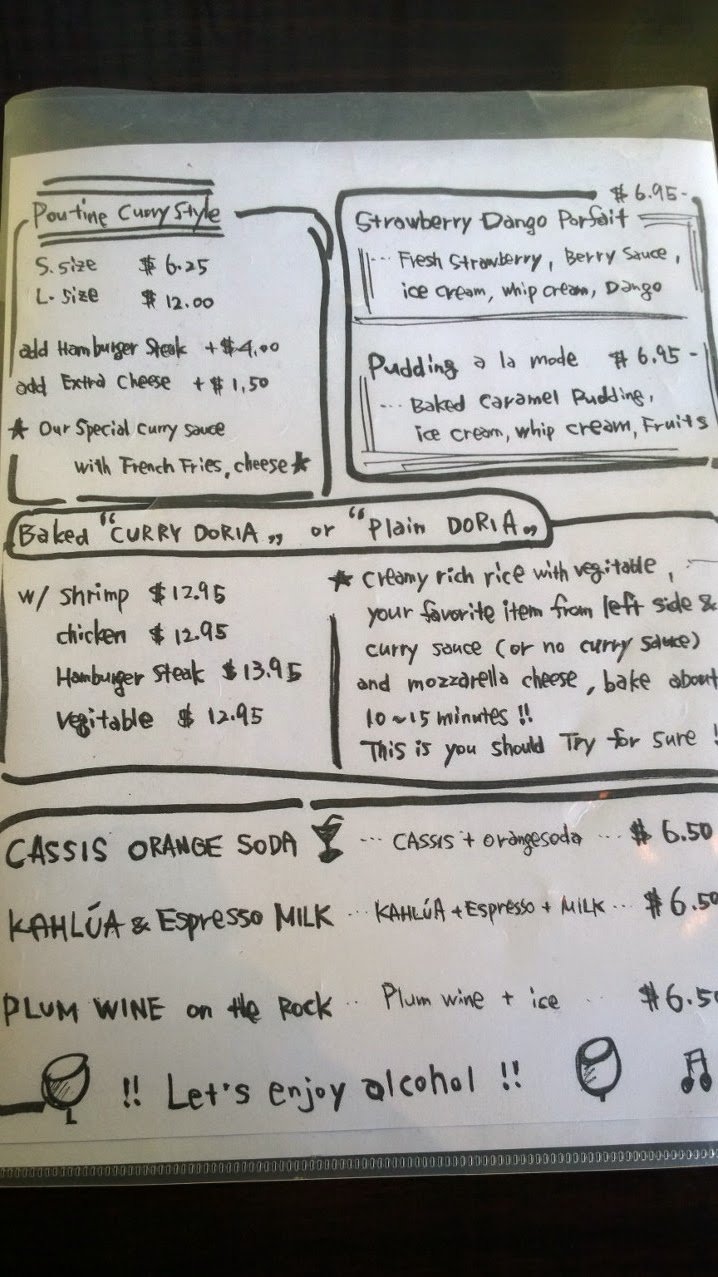 Poutine Curry Style
S. size $ 6.25
L. size $ 12.00
add Hamburger Steak +$4.00
add Extra Cheese +$1.50
★ Our Special curry sauce
with French Fries, cheese ★
$ 6.95-
Strawberry Dango Parfait
... Fresh Strawberry, Berry Sauce,
ice cream, whip cream, Dango
Pudding a la mode $ 6.95-
... Baked caramel Pudding,
ice cream, whip cream, Fruits
Baked "CURRY DORIA„ or "Plain DORIA„
w/ shrimp $12.95
chicken $ 12.95
Hamburger Steak $ 13.95
vegitable $ 12.95
★ creamy rich rice with vegitable,
your favorite item from left side &
curry sauce (or no curry sauce)
and mozzarella cheese, bake about
10~15 minutes !!
This is you should Try for sure !
CASSIS ORANGE SODA ... CASSIS + orangesoda ... $ 6.50
KAHLÚA & Espresso MILK ... KAHLÚA + Espresso + MILK ... $ 6.50
PLUM WINE on the Rock .. Plum wine + ice .. $ 6.50
!! Let's enjoy alcohol !!